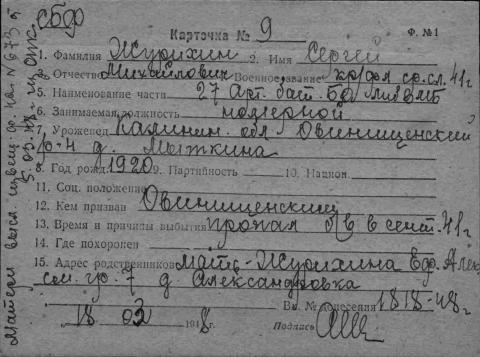 СБФ
Карточка № 9
Ф. №1
1. Фамилия Журихин 2. Имя Сергей
3. Отчество Михайлович Военное звание кр/фл ср.сл. 41г
5. Наименование части 27 Арт. бат. БО ЛивВМБ
6. Занимаемая должность номерной
7. Уроженец Калинин. обл Овинищенский
р-н д. Мяткина
8. Год рожд. 1920 9. Партийность 10. Национ.
11. Соц. положение
12. Кем призван Овинищенский
13. Время и причины выбытия пропал б/в в сент. 41г
14. Где похоронен
15. Адрес родственников мать - Журихина Еф. Алек
сем. гр. 7 д. Александровка
Вх. № донесения 1818-48г
18 03 1948г.
Подпись
Матери высл. извещ. ф. №1 N 673